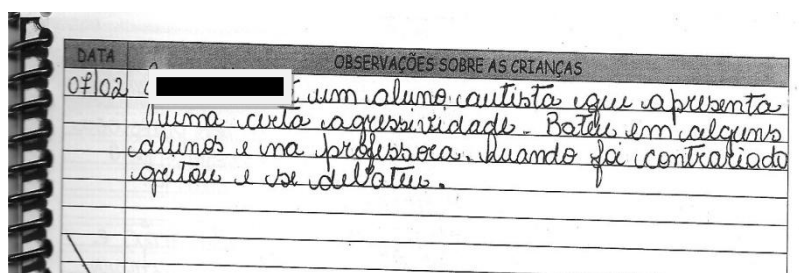 DATA OBSERVAÇÕES SOBRE AS CRIANÇAS
07/02 é um aluno autista que apresenta
uma certa agressividade. Bateu em alguns
alunos e na professora. Quando foi contrariado
gritou e se debateu.